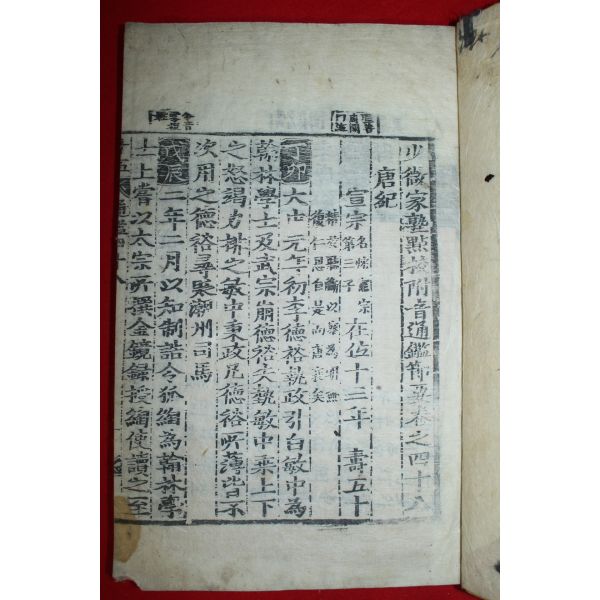 少微家塾點校附音通鑑節要卷之四十八
唐紀
宣宗 名忱憲宗第三子 在位十三年 壽五十
丁卯 大中元年初李德裕執政引白敏中為
翰林學士及武宗崩德裕失執敏中乘上下
之怒竭力排之敏中秉政凡德裕所薄皆不
次用之德裕尋貶潮州司馬
戊辰 二年二月以知制誥令狐綯為翰林學
士上嘗以太宗所撰金鏡錄授綯使讀之至